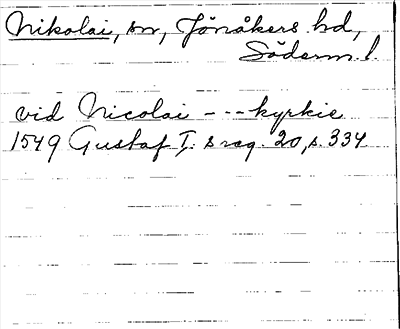 Nikolai, sn, Jönåkers hd,
Söderm. l.
vid Nicolai --- kyrkie
1549 Gustaf I:s reg. 20, s. 334